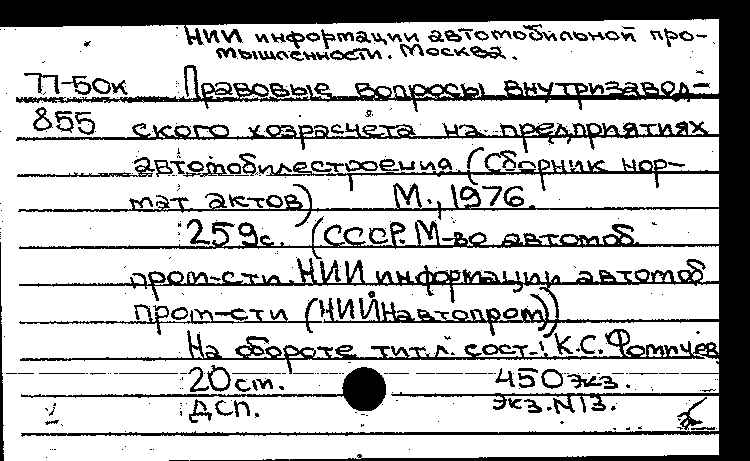 НИИ информации автомобильной про-
мышленности. Москва.
77-50к Правовые вопросы внутризавод-
855 ского хозрасчета на предприятиях
автомобилестроения. (Сборник нор-
мат. актов) М., 1976.
259с. (СССР. М-во автомоб.
пром-сти. НИИ информации автомоб
пром-сти (НИИНавтопром))
На обороте тит.л. сост.: К.С.
20см. 450 экз.
ДСП. экз.N13.